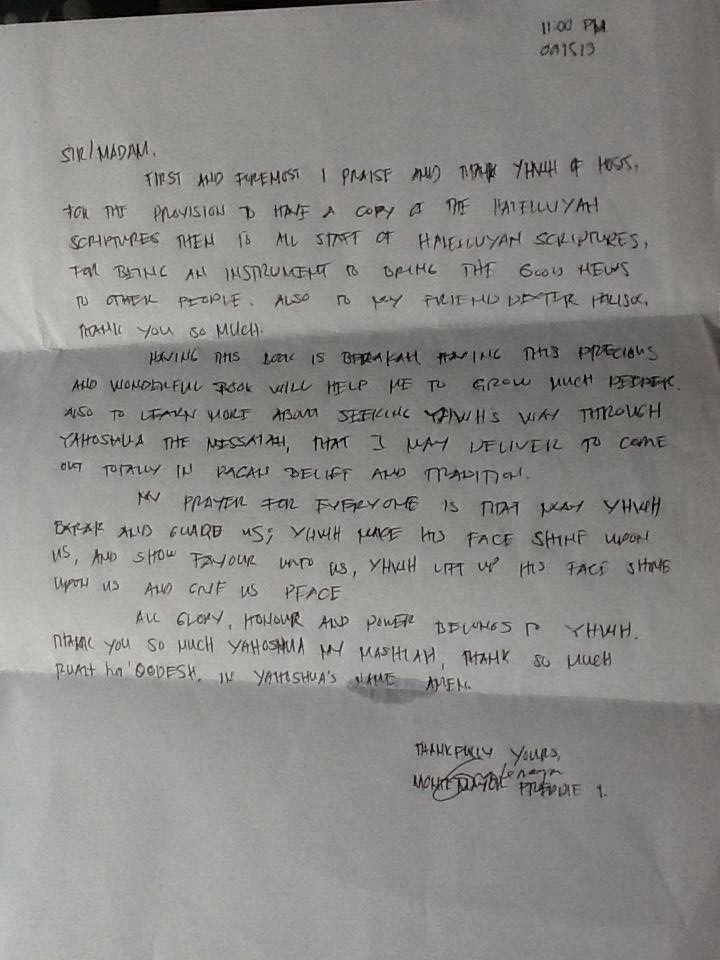 11:00 PM
091513
SIR/MADAM,
FIRST AND FOREMOST I PRAISE AND THANK YHWH OF HOSTS,
FOR THE PROVISION TO HAVE A COPY OF THE HALELLUYAH
SCRIPTURES THEN TO ALL STAFF OF HALELLUYAH SCRIPTURES,
FOR BEING AN INSTRUMENT TO BRING THE GOOD NEWS
TO OTHER PEOPLE. ALSO TO MY FRIEND DEXTER
THANK YOU SO MUCH.
HAVING THIS BOOK IS BERAKAH HAVING THIS PRECIOUS
AND WONDERFUL BOOK WILL HELP ME TO GROW MUCH DEEPER.
ALSO TO LEARN MORE ABOUT SEEKING YHWH'S WAY THROUGH
YAHOSHUA THE MESSAIAH, THAT I MAY DELIVER TO COME
OUT TOTALLY IN PAGAN BELIEF AND TRADITION.
MY PRAYER FOR EVERYONE IS THAT MAY YHWH
BARAK AND GUARD US; YHWH MAKE HIS FACE SHINE UPON
US, AND SHOW FAVOUR UNTO US, YHWH LIFT UP HIS FACE SHINE
UPON US AND GIVE US PEACE.
ALL GLORY, HONOUR AND POWER BELONGS TO YHWH.
THANK YOU SO MUCH YAHOSHUA MY MASHIAH, THANK SO MUCH
RUAH ha'QODESH. IN YAHOSHUA'S NAME AMEN.
THANKFULLY YOURS,
FREDDIE